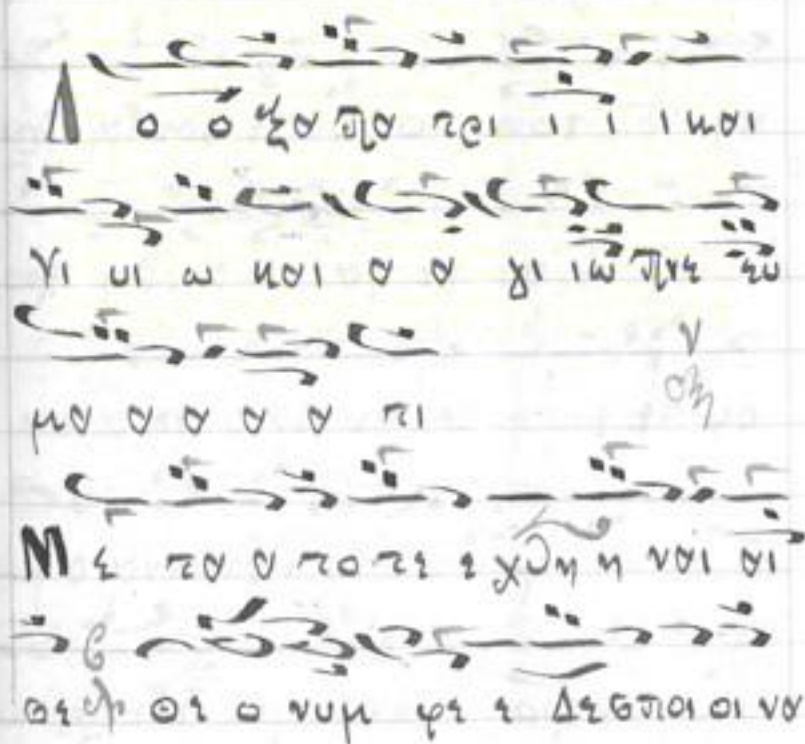 Δ ο ό ξα πα τρι ι ι ι και
γι υι ω και α α γι ιω πνε ευ
μα α α α α τι
Μ ε τα α το τε ε χθη η ναι αι
σε Θε ο νυμ φε ε Δεσποι οι να